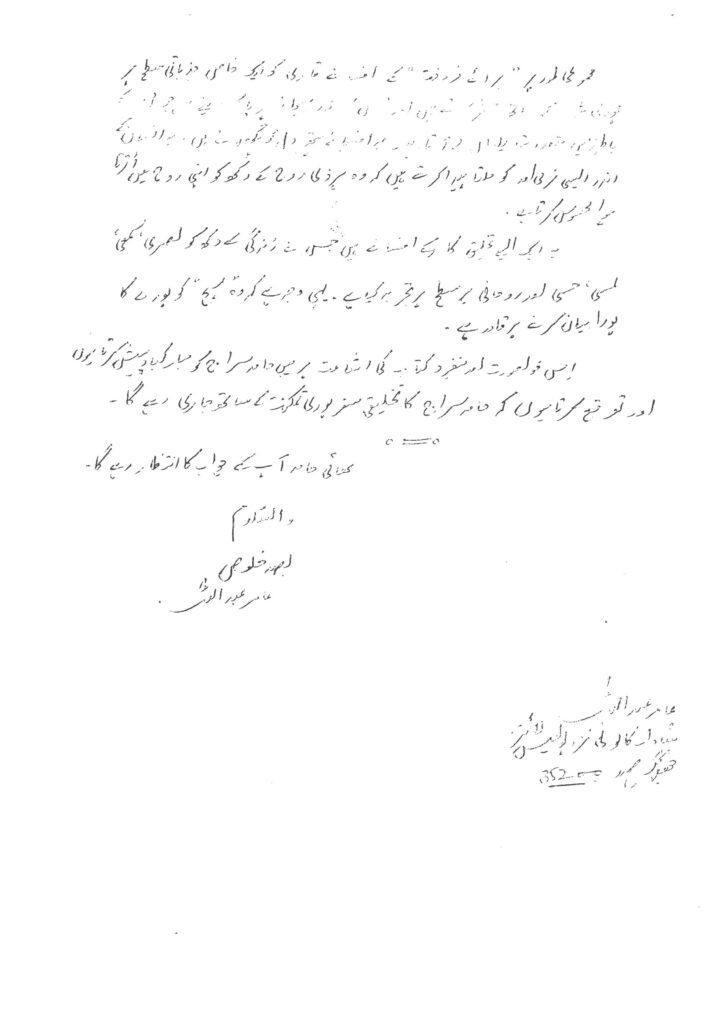 مجموعی طور پر "برائے فروخت" کے افسانے قاری کو ایک خاص جذباتی سطح پر
افسانے
اندر ایسی نرمی اور کو ملتا پیدا کرتے ہیں کہ وہ ہر ذی روح کے دکھ کو اپنی روح میں اُترتا
ہوا محسوس کرتا ہے۔
یہ ایک ایسے تخلیق کار کے افسانے ہیں جس نے زندگی کے دکھ کو بصری، سمعی،
لمسی، حسی اور روحانی ہر سطح پر تجربہ کیا ہے۔ یہی وجہ ہے کہ وہ "سچ" کو پورے کا
پورا بیان کرنے پر قادر ہے۔
اس خوبصورت اور منفرد کتاب کی اشاعت پر میں حامد سراج کو مبارکباد پیش کرتا ہوں
اور توقع کرتا ہوں کہ حامد سراج کا تخلیقی سفر پوری تمکنت کے ساتھ جاری رہے گا۔
بھائی حامد آپ کے جواب کا انتظار رہے گا۔
والسلام
بصد خلوص
عامر عبداللہ
عامر عبداللہ
کالونی نزد پولیس لائنز
جھنگ صدر 352